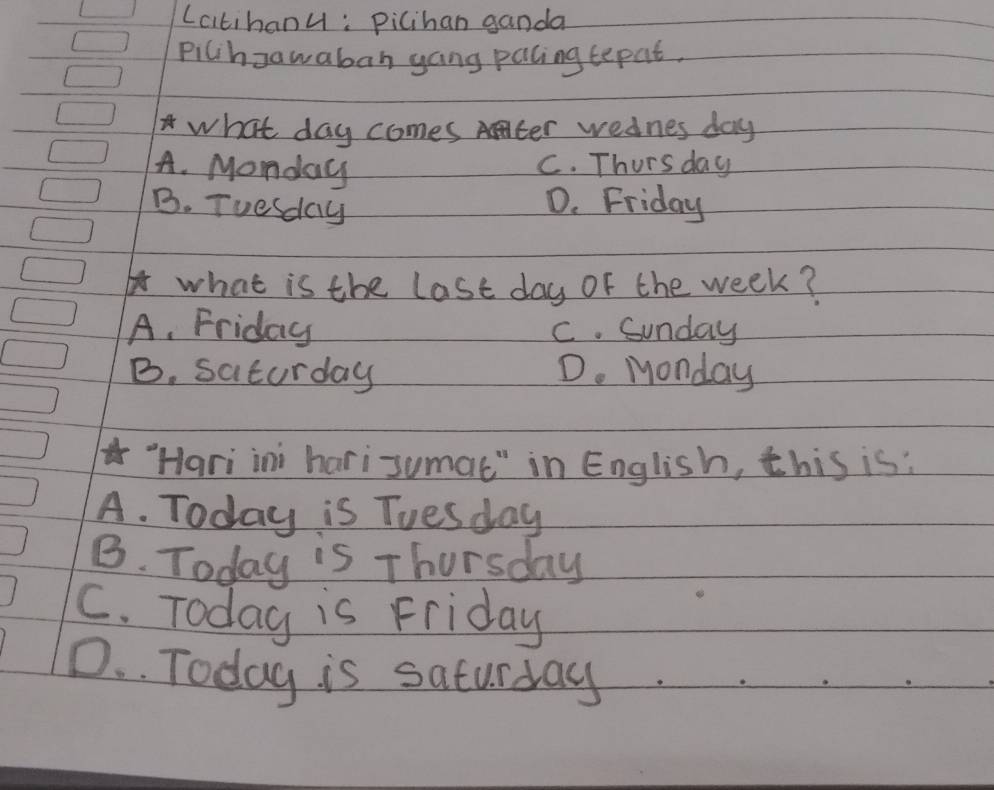 Latihan 4: Pilihan ganda
Pilih jawaban yang paling tepat.
* What day comes After wednesday
A. Monday C. Thursday
B. Tuesday D. Friday
* what is the last day of the week?
A. Friday C. Sunday
B. Saturday D. Monday
* "Hari ini hari jumat" in English, this is:
A. Today is Tuesday
B. Today is Thursday
C. Today is Friday
D. Today is saturday